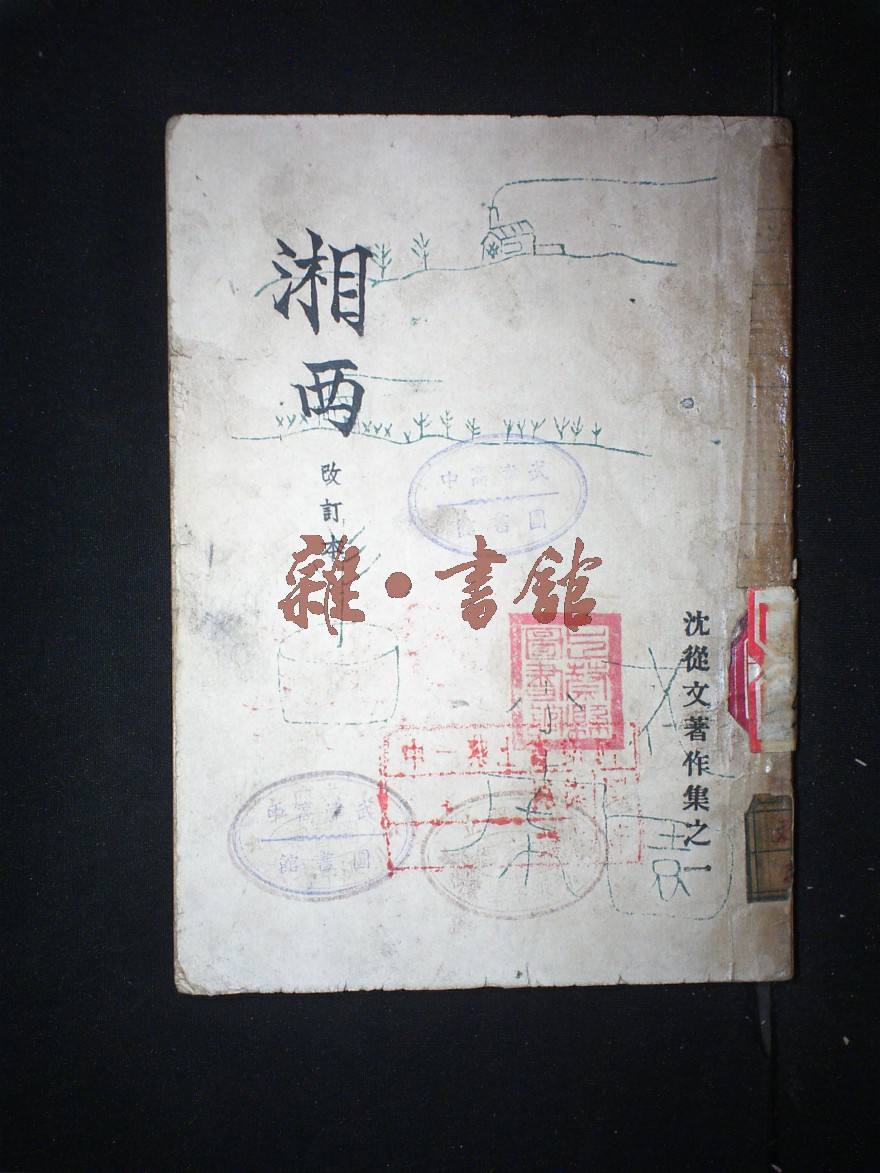 湘西
改訂本
沈從文著作集之一
雜·書館
武淸高中
圖書館
武淸高中
圖書館